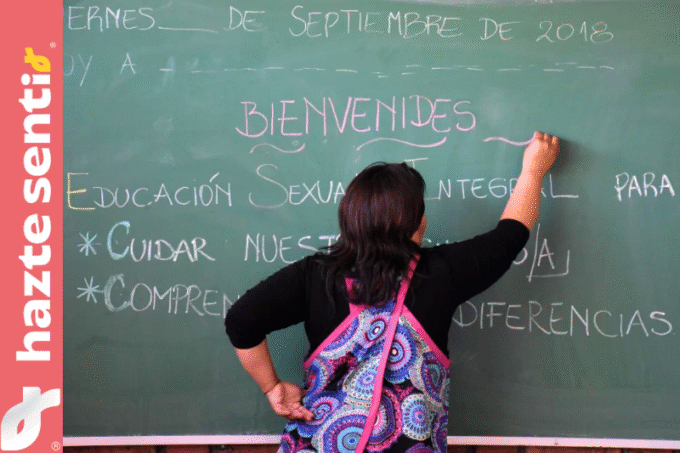 hazte sentir
VIERNES___ DE SEPTIEMBRE DE 2018
HOY A
BIENVENIDES
EDUCACIÓN SEXUAL INTEGRAL PARA
* CUIDAR
* DIFERENCIAS